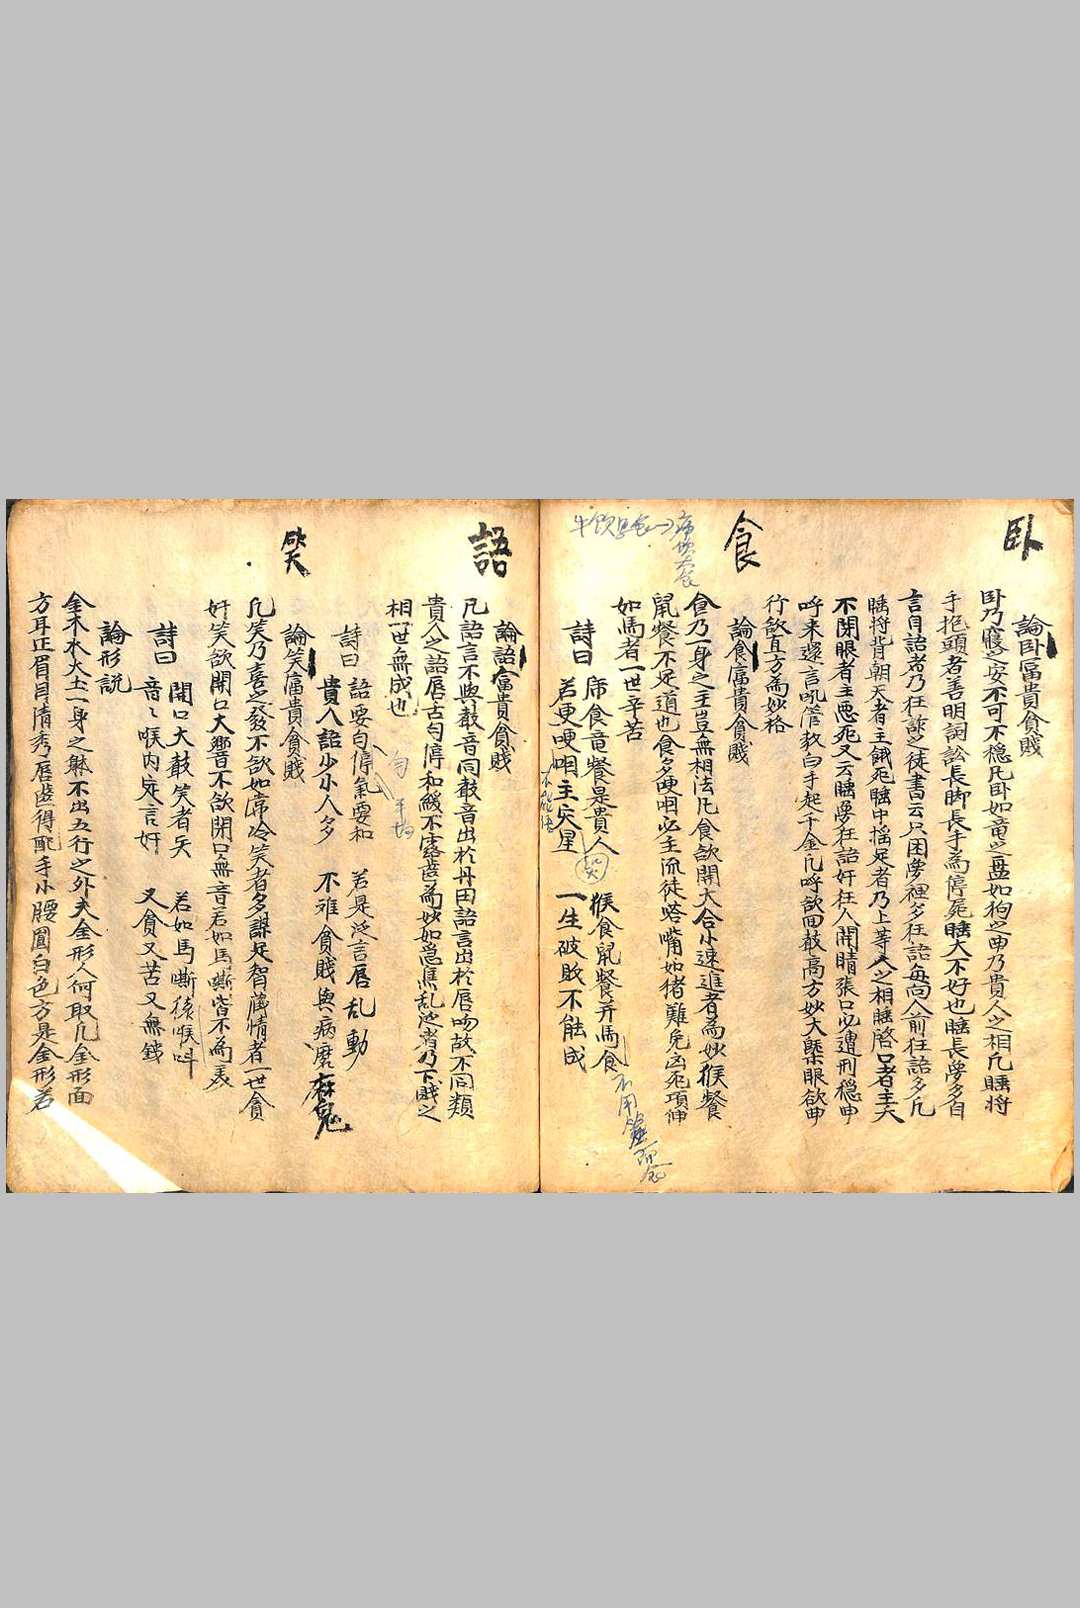 卧
論卧冨貴貧賤
卧乃寢之安不可不穏凡卧如竜之盤如狗之曲乃貴人之相凡睡將
手抱頭者善明詞訟長脚長手為停屍睡大不好也睡長夢多自
言自語者乃狂詐之徒書云只困夢裡多狂語每向人前狂語多凡
睡將背朝天者主餓死睡中揺足者乃上等人之相睡啓口者主夭
不閉眼者主悪死又云睡夢狂語奸狂人開睛張口必遭刑穏中
呼来還言吼管教白手起千金凡呼欲回𣪊高方妙大槩眼欲申
行欲直方為妙格
食
論食冨貴貧賤
食乃一身之主豈無相法凡食欲開大合小速進者為妙猴餐
鼠餐不足道也食多哽咽必主流徒嗒嘴如猪難免凶死項伸
如馬者一世辛苦
詩曰
席食竜餐是貴人
猴食鼠餐并馬食
若更哽咽主灾星
一生破敗不能成
語
論語冨貴貧賤
凡語言不與𣪊音同𣪊音出於丹田語言出於唇吻故不同類
貴人之語唇舌勻停和緩不露齒為妙如急焦乱泛者乃下賤之
相一世無成也
詩曰
語要勻停氣要和
若是泛言唇乱動
貴人語少小人多
不唯貧賤與病磨
麻鬼
笑
論笑冨貴貧賤
凡笑乃喜之發不欲如常冷笑者多謀足智藏情者一世貪
奸笑欲開口大響不欲閉口無音若如馬嘶皆不為美
詩曰
開口大𣪊笑者矣
若如馬嘶猿喉呌
音〻喉内定言奸
又貧又苦又無錢
論形説
金木水火土一身之躰不出五行之外夫金形人何取凡金形面
方耳正眉目清秀唇齒得配手小腰圓白色方是金形若